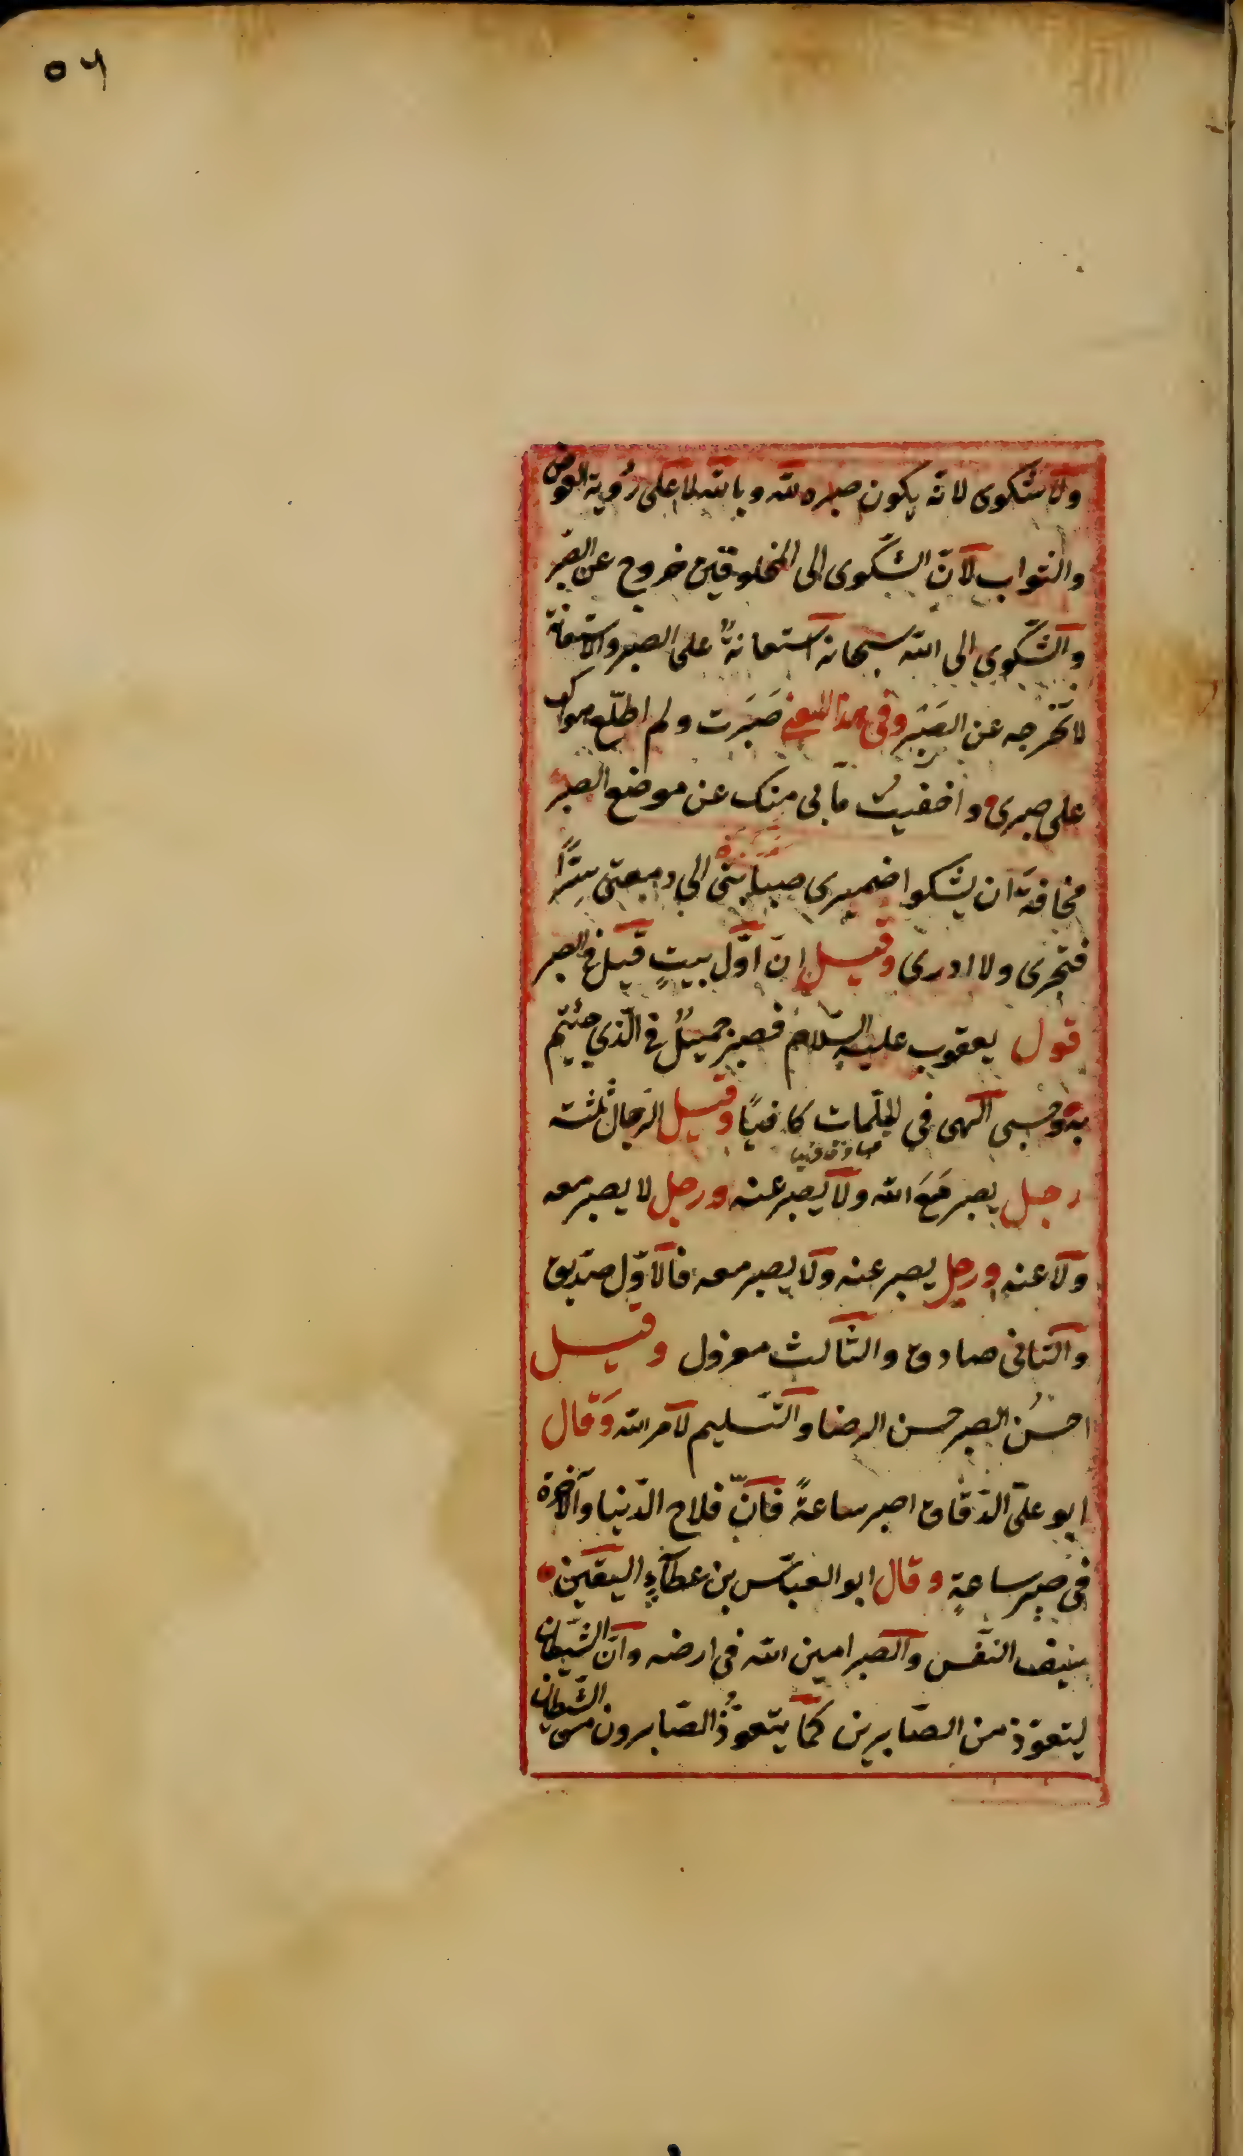 ٥٦
ولا شكوى لانه يكون صبره لله وبالله لا على رُوية العوض
والثواب لآنّ الشكوى الى المخلوقين خروج عن الصّبر
والشّكوى الى الله سبحانه استعانةٌ على الصبر والاستعانة
لا تخرجه عن الصَبَر وفي هذا المعنى صَبَرت ولم اطلع هواك
على صبرى واخفيت ما بى منك عن موضع الصبر
مخافةَ ان يشكوا ضميرى صبابتى الى دمعتى سِرًّا
فتجرى ولا ادرى وقيل انّ اوّل بيتٍ قيل فى الصبر
قول يعقوب عليه السّلام فصبر جميلٌ فى الّذي جئتم
به وحسبى آلهى فى الملمات كافيًا وقيل الرّجال ثلثة
رجل يصبر مَعَ الله ولا يصبر عنه ورجل لا يصبر معه
ولا عنه ورجل يصبر عنه ولا يصبر معه فالاوّل صدّيق
والثانى صادق والثالث معزول وقيل
احسنُ الصبر حسن الرضا والتّسليم لآمر الله وَقال
ابو علىّ الدّقاق اصبر ساعةً فانّ فلاح الدّنيا والآخرة
فى صبر ساعةٍ وقال ابو العبّاس بن عطآءٍ اليقين
سيف النّفس والصبر امين الله فى ارضه وآنّ الشّيطان
ليتعوّذ من الصّابرين كما يتعوّذُ الصّابرون من الشّيطان